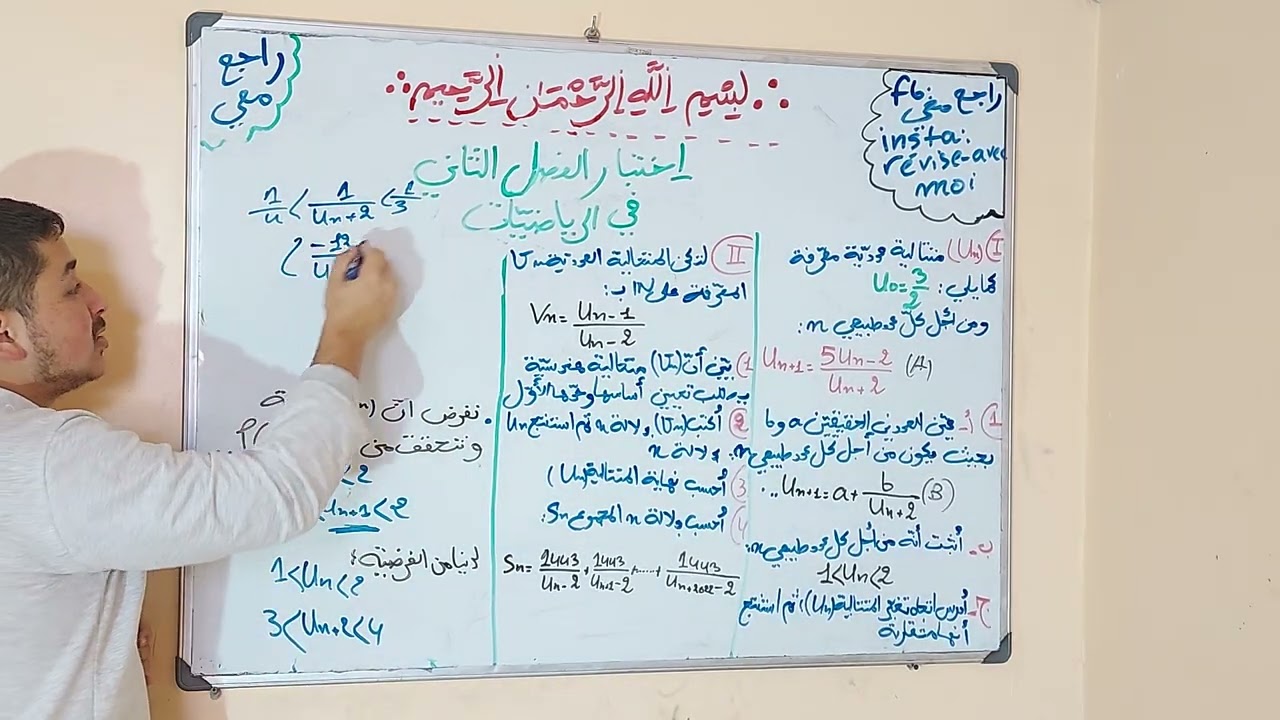 راجع
معي
∴ بسم الله الرّحمٰن الرّحيم ∴
راجع
fb:
معي
insta:
révise-avec
moi
اختبار الفصل الثاني
في الرياضيّات
I (Un) متتالية عدديّة معرّفة
كما يلي: U0 = 3/2
ومن أجل كلّ عدد طبيعي n:
Un+1 = (5Un-2)/(Un+2) (A)
1 أ- عيّن العددين الحقيقيّين a و b
بحيث يكون من أجل كل عدد طبيعي n:
Un+1 = a + b/(Un+2) (B)
ب- أثبت أنّه من أجل كل عدد طبيعي n:
1<Un<2
ج- أدرس اتجاه تغيّر المتتالية (Un)، ثم استنتج
أنها متقاربة
II لتكن المتتالية العددية
المعرّفة على N ب:
Vn = (Un-1)/(Un-2)
1 بيّن أنّ (Vn) متتالية هندسيّة
يطلب تعيين أساسها وحدّها الأوّل
2 أكتب (Vn) بدلالة n ثم استنتج Un
بدلالة n
3 أحسب نهاية المتتالية (Un)
4 أحسب بدلالة n المجموع Sn:
Sn = 1443/(Un-2) + 1443/(Un+1-2) + ..... + 1443/(Un+2022-2)
1/4 < 1/(Un+2) < 1/3
< -12
نفرض أنّ
ونتحقق من
<2
Un+1<2
لدينا من الفرضية:
1<Un<2
3<Un+2<4